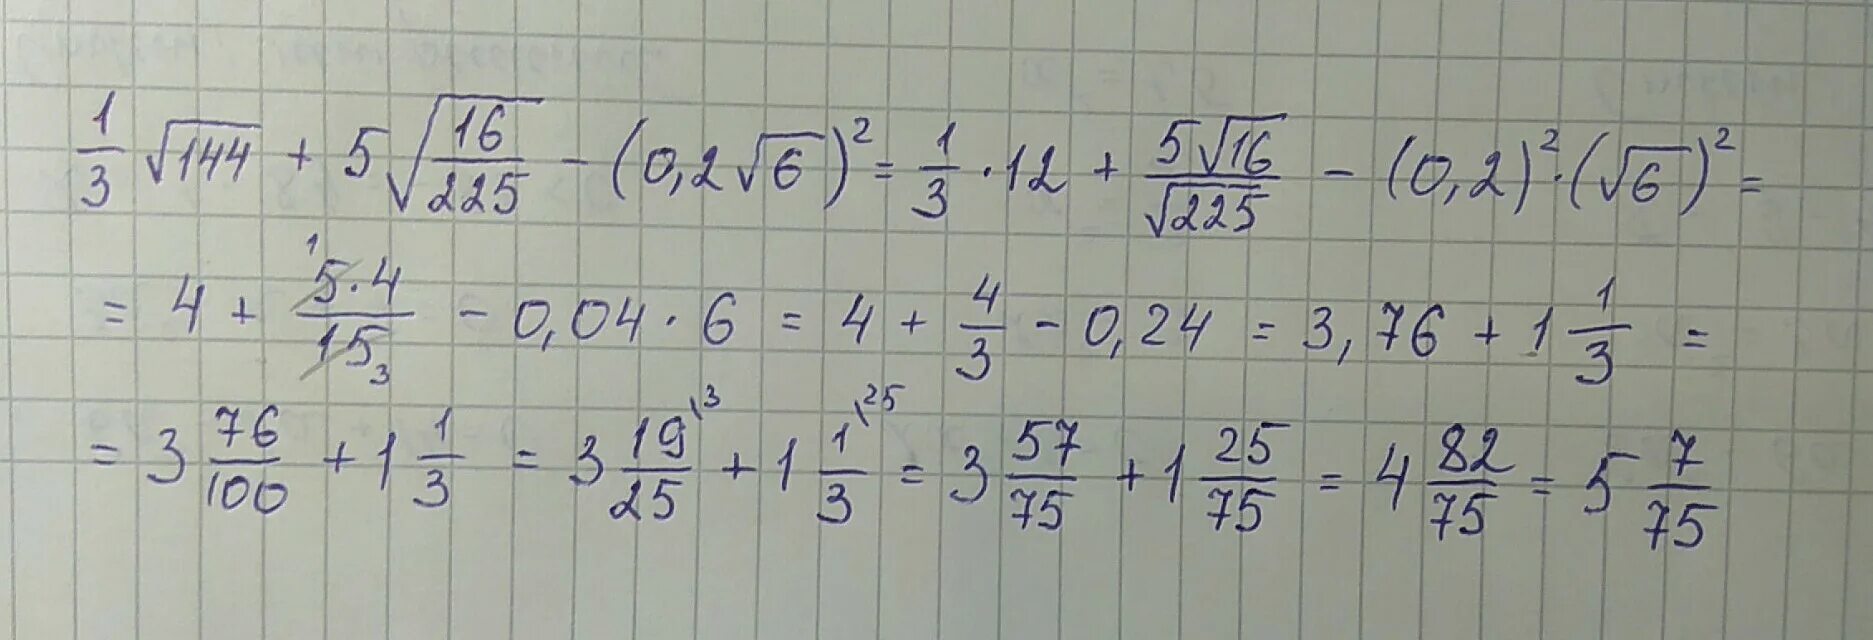 1/3 √144 + 5√(16/225) − (0,2√6)² = 1/3 · 12 + 5√16/√225 − (0,2)² · (√6)² =
= 4 + ¹5·4/15₃ − 0,04 · 6 = 4 + 4/3 − 0,24 = 3,76 + 1 1/3 =
= 3 76/100 + 1 1/3 = 3 19/25 \³ + 1 1/3 \²⁵ = 3 57/75 + 1 25/75 = 4 82/75 = 5 7/75